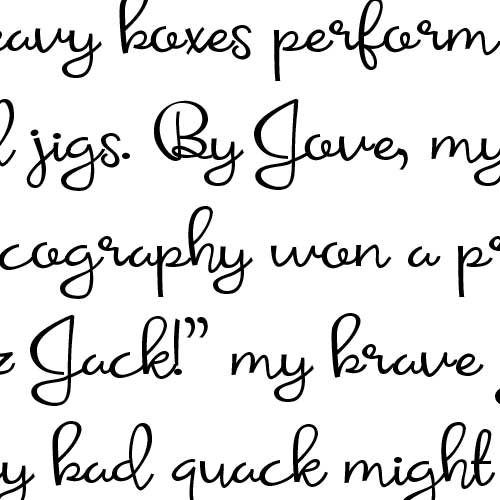 eavy boxes perform
l jigs. By Jove, my
cography won a pr
z Jack!” my brave
y bad quack might